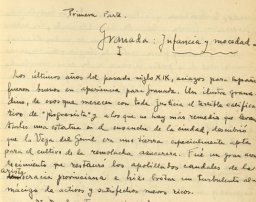 Primera Parte.
Granada: Infancia y mocedad.
I
Los últimos años del pasado siglo XIX, aciagos para España
fueron buenos en apariencia para Granada. Un ilustre grana-
dino, de esos que merecen con toda justicia el terrible califica-
tivo de "progresista" y a los que no hay más remedio que levan-
tarles una estatua en el ensanche de la ciudad, descubrió
que la Vega del Genil era una tierra especialmente apta
para el cultivo de la remolacha azucarera. Fué un gran acon-
tecimiento que restauró los apolillados caudales de la
aristo
cracia provinciana e hizo brotar un turbulento al-
máciga de activos y satisfechos nuevos ricos.